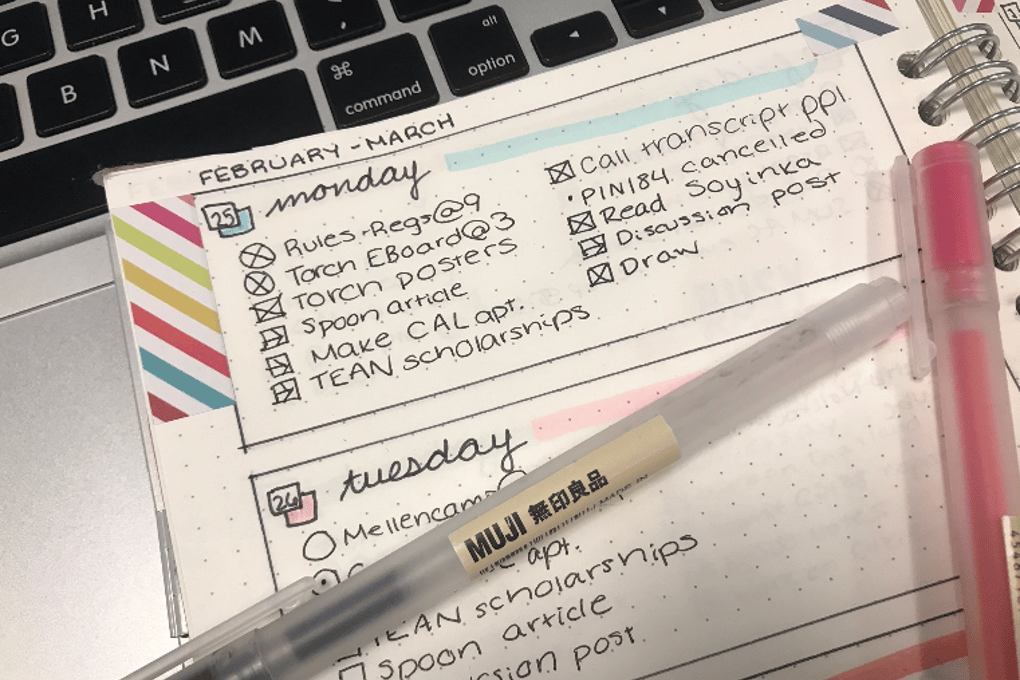 G
H
B
N
M
,
;
⌘
command
alt
option
FEBRUARY - MARCH
25
monday
Rules + Regs @ 9
Torch EBoard @ 3
Torch posters
Spoon article
Make CAL apt.
TEAN scholarships
Call transcript ppl.
• PIN184 cancelled
Read Soyinka
Discussion post
Draw
26
tuesday
Mellencam
apt.
TEAN scholarships
Spoon article
ssion post
MUJI 無印良品